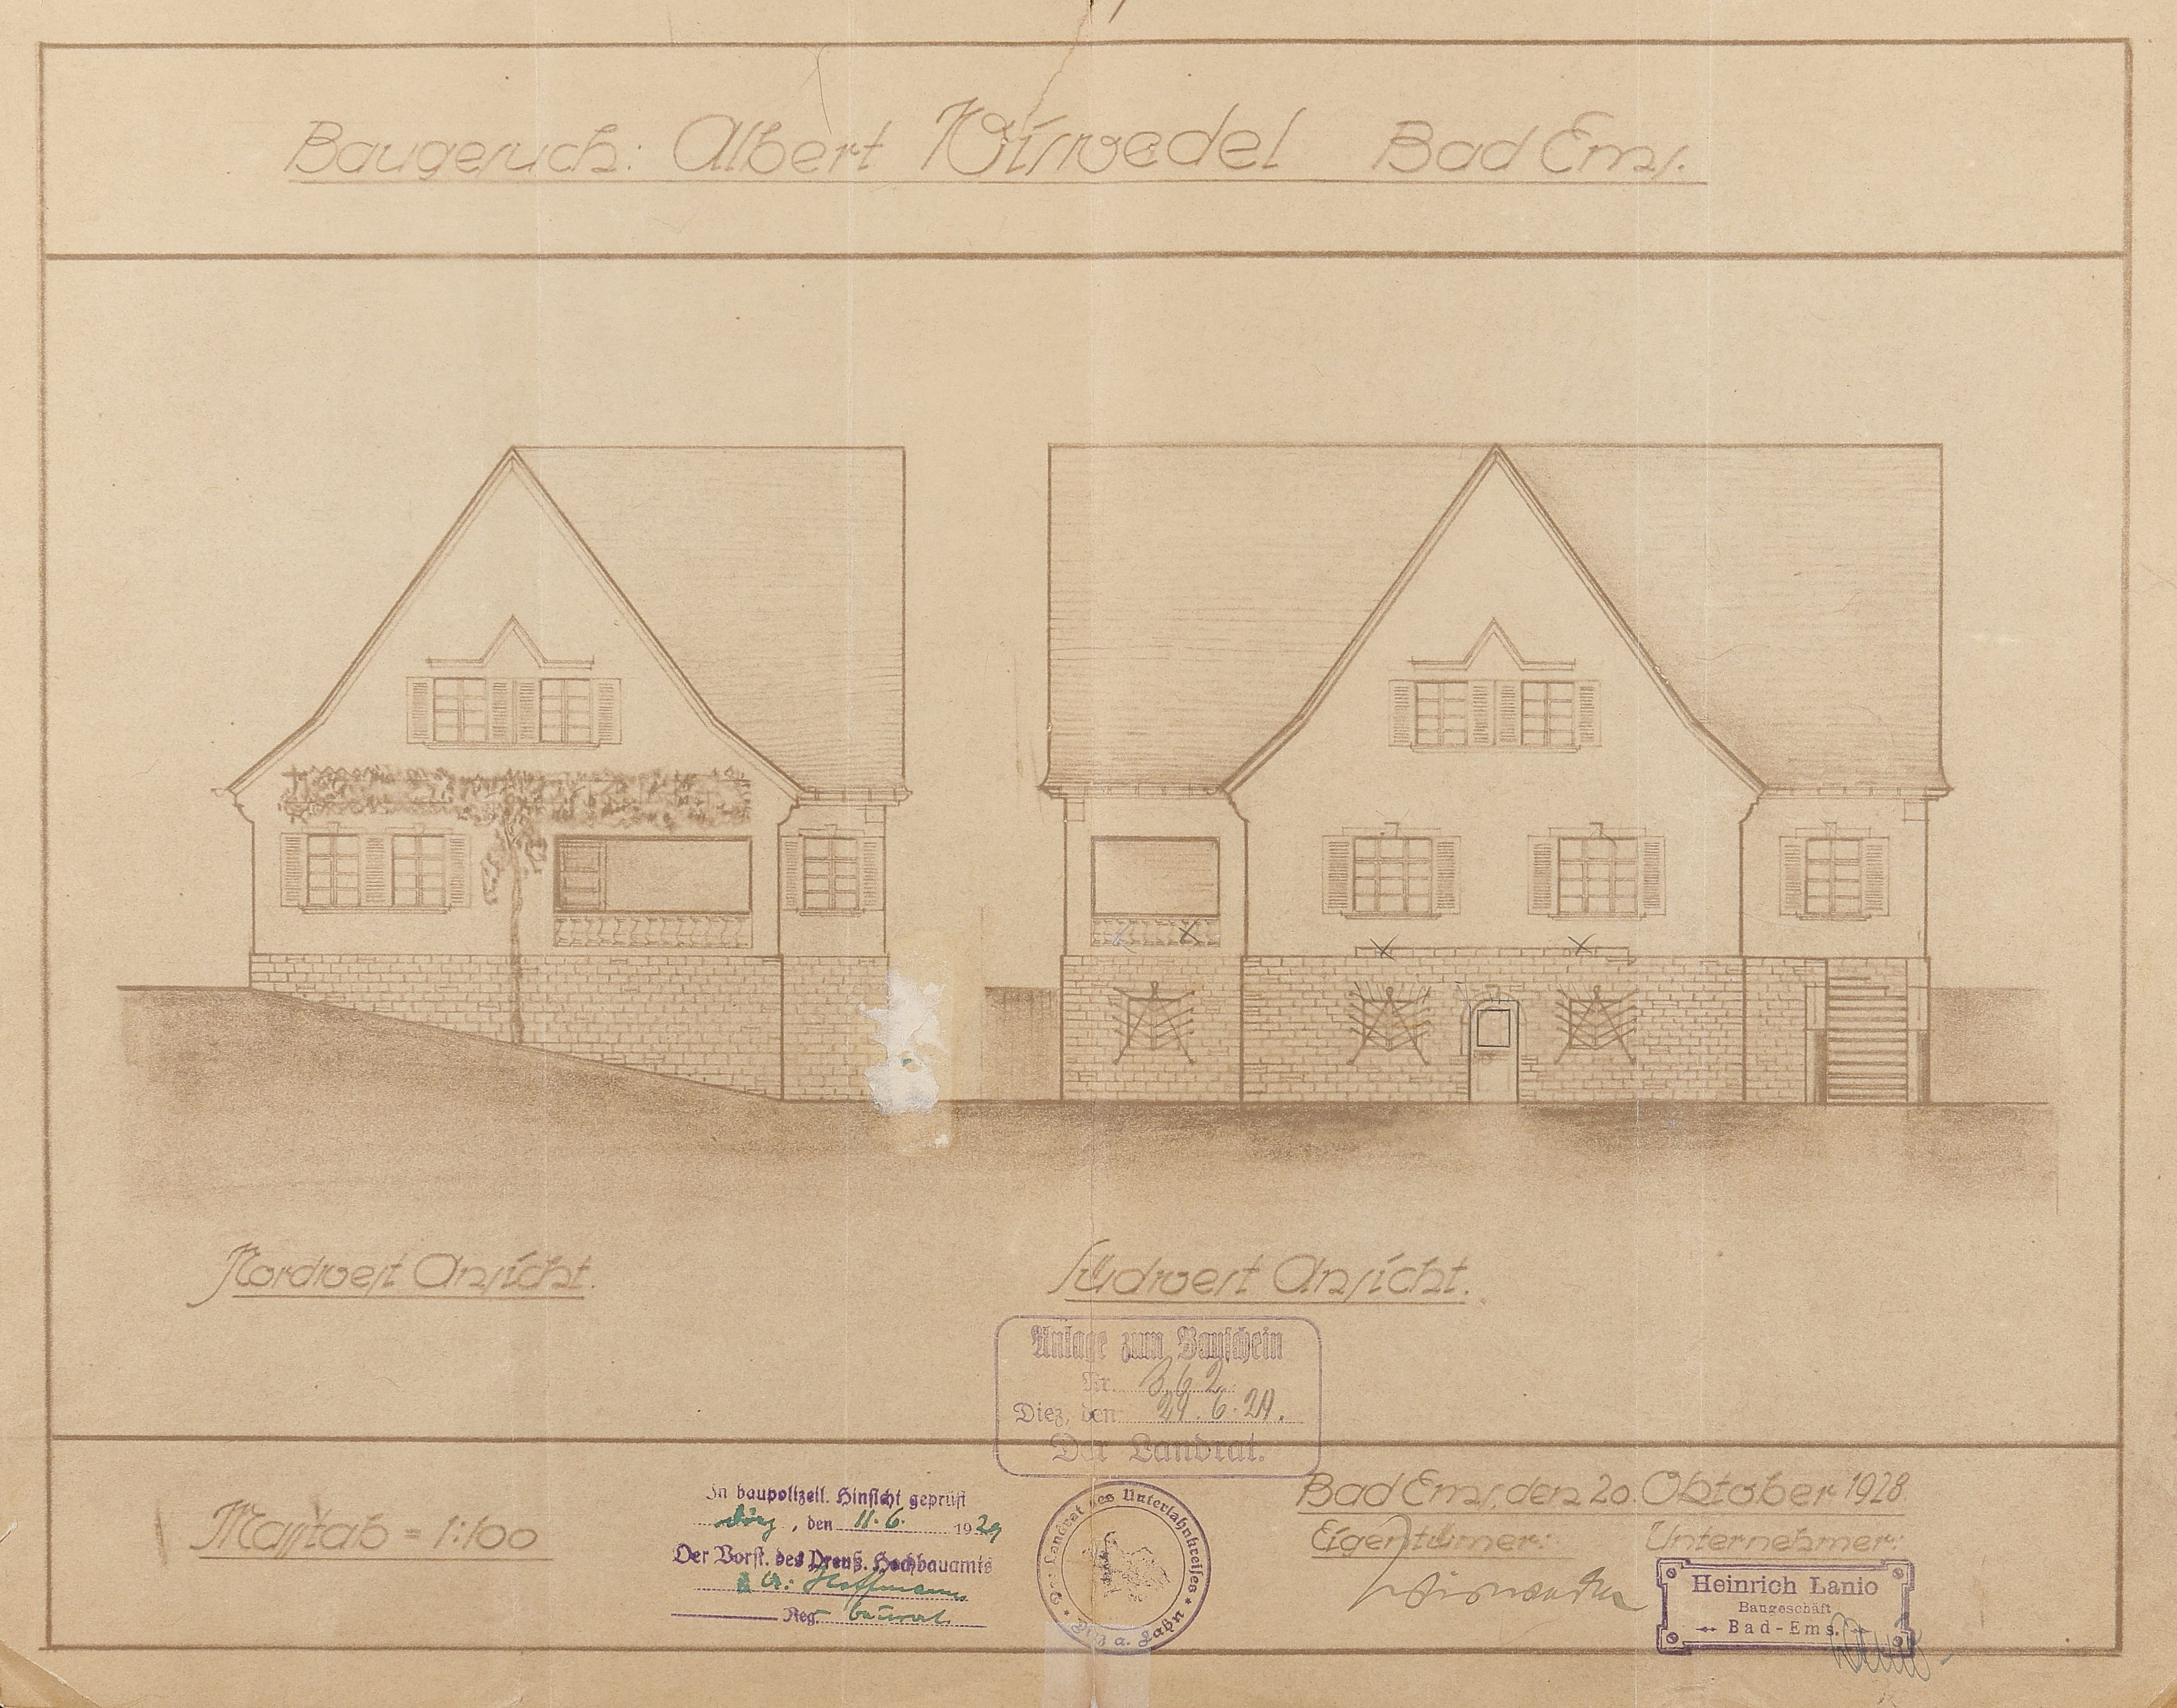 Baugesuch: Albert Wiswedel Bad Ems.
Nordwest Ansicht.
Südwest Ansicht.
Anlage zum Bauschein
Nr. 362
Diez, den 29. 6. 29.
Der Landrat.
Masstab = 1:100
In baupolizeil. Hinsicht geprüft
Diez, den 11. 6. 1929
Der Vorst. des Preuß. Hochbauamts
Hoffmann
Reg. baurat.
Der Landrat des Unterlahnkreises
* Diez a. Lahn *
Bad Ems, den 20. Oktober 1928
Eigentümer: Unternehmer:
Wiswedel
Heinrich Lanio
Baugeschäft
Bad-Ems.